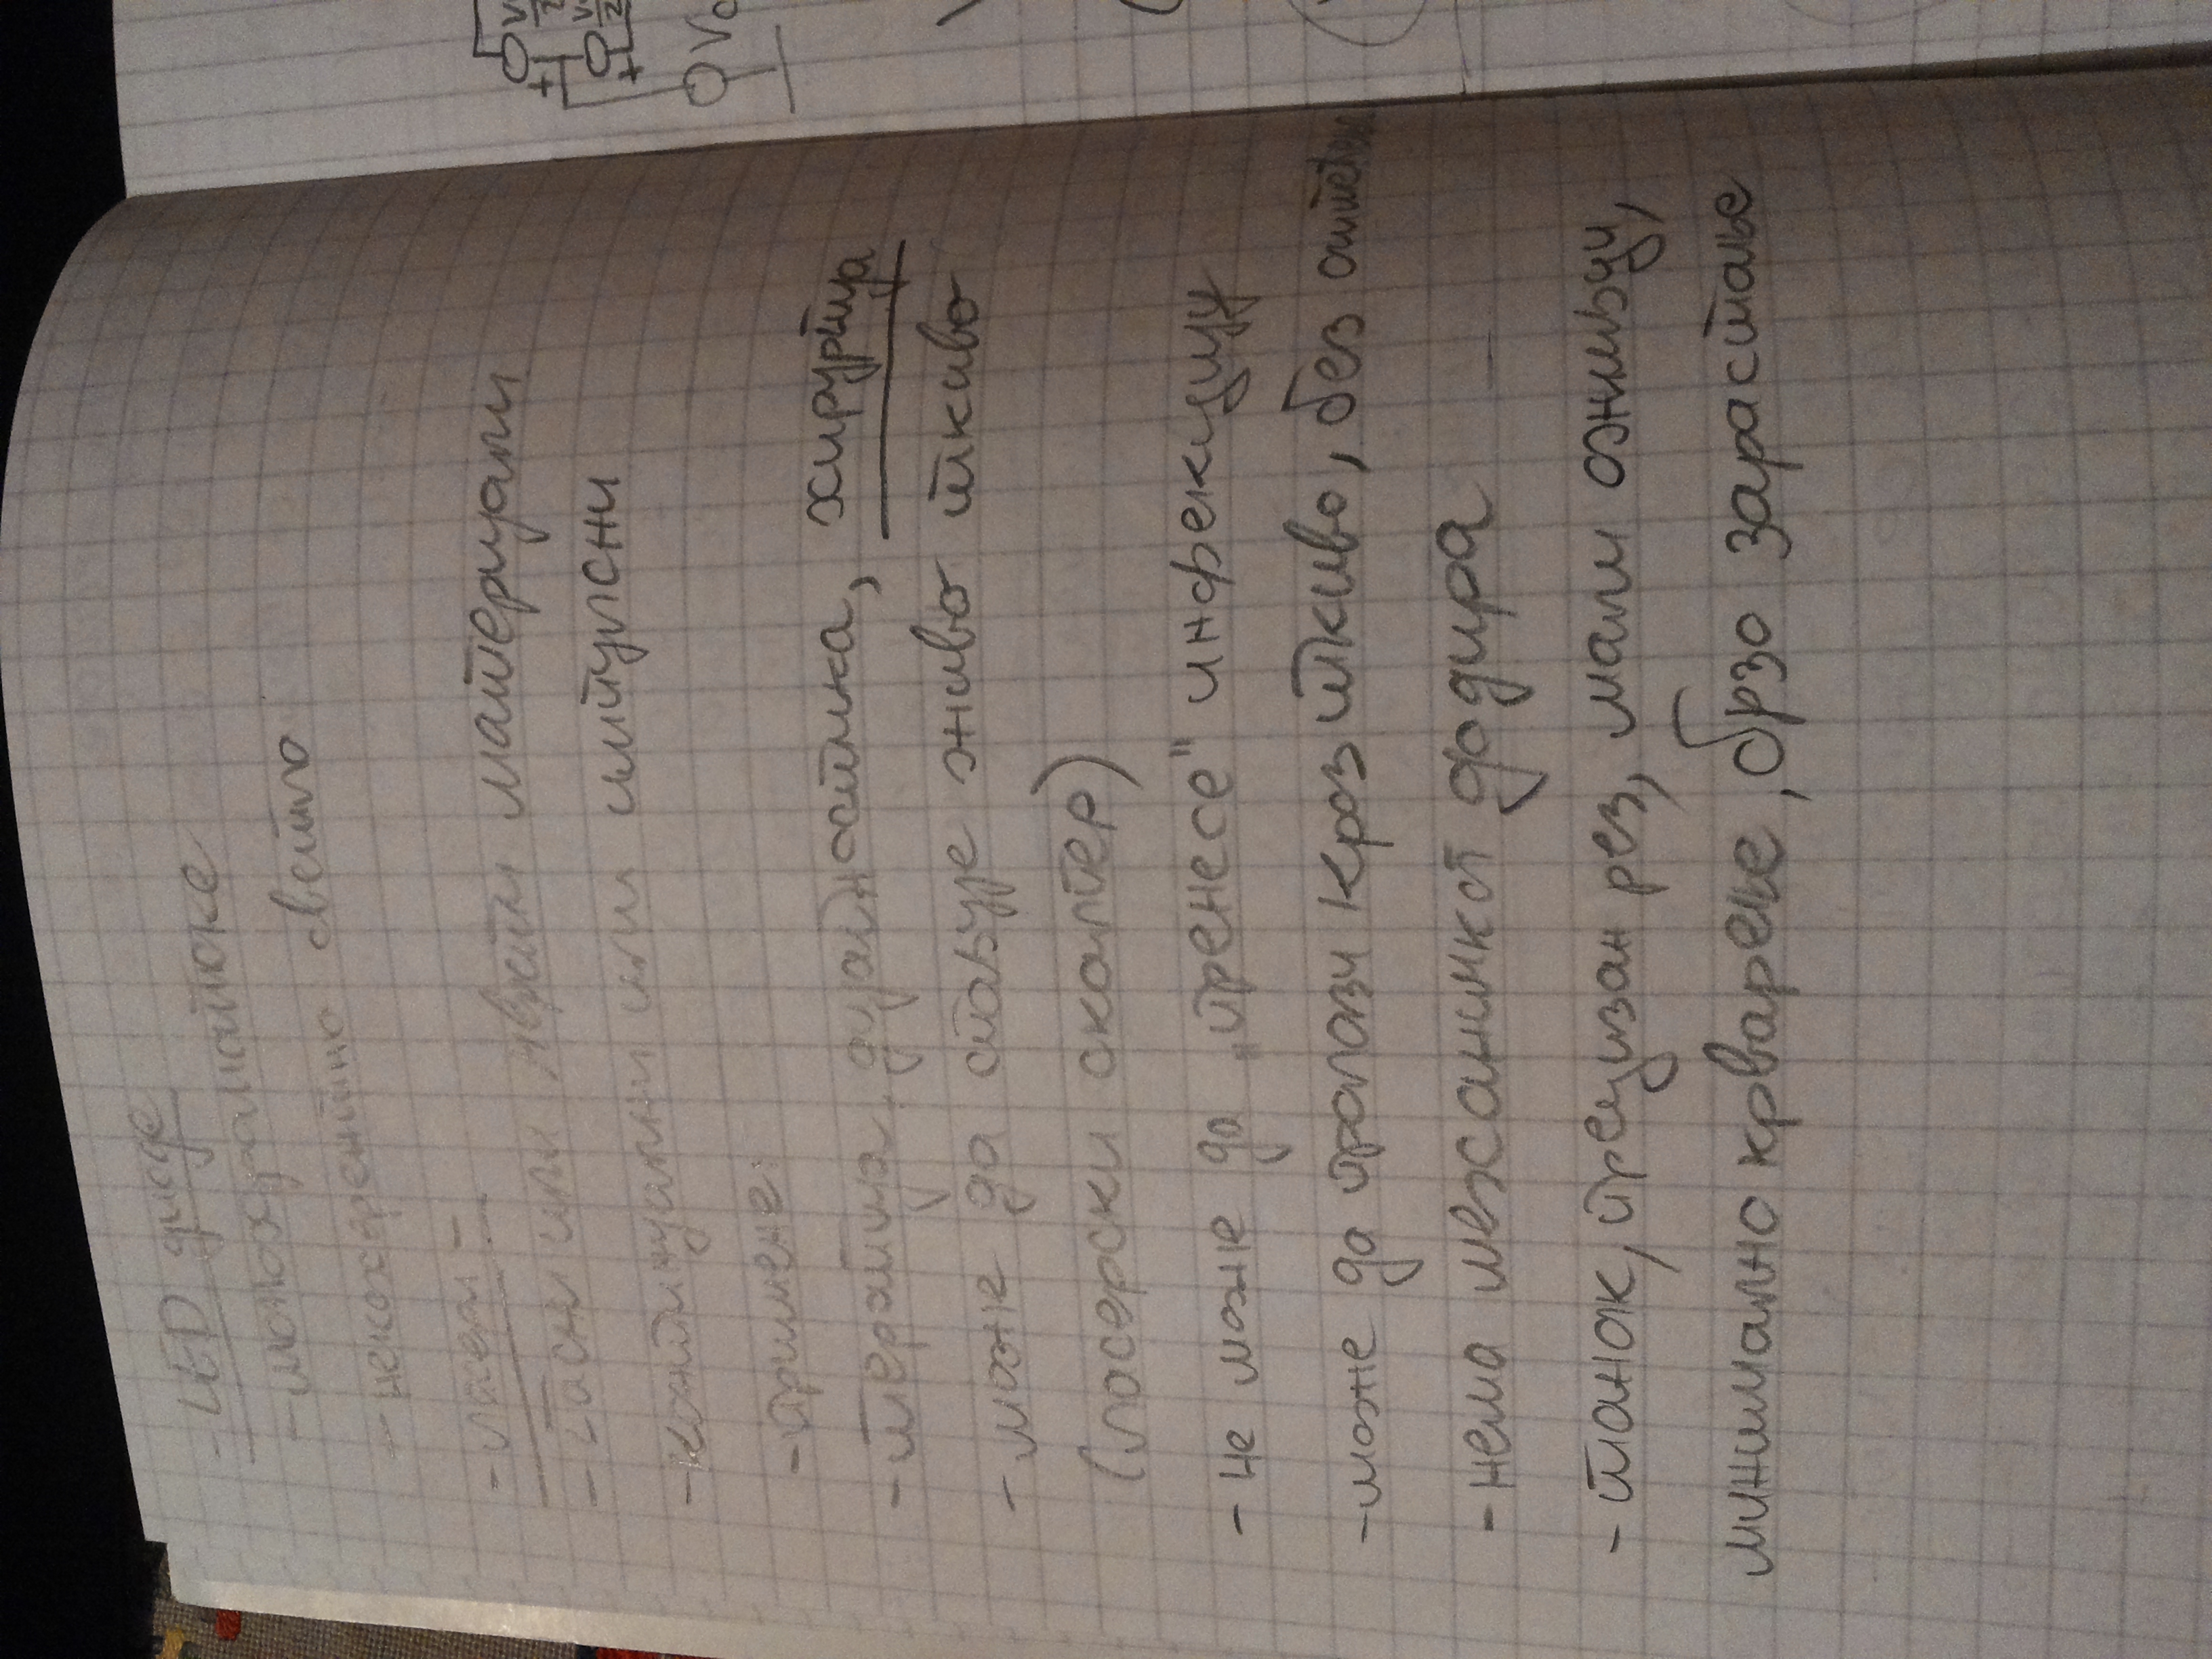 - LED диоде
- монохроматске
- некохерентно светло
- ласери -
- гасни или чврсти материјали
- континуални или импулсни
- примене:
- терапија, дијагностика, хирургија
- може да спаљује живо ткиво
(ласерски скалпер)
- не може да „пренесе" инфекцију
- може да пролази кроз ткиво, без оштећења
- нема механичког додира
- танак, прецизан рез, мали ожиљци,
минимално крварење, брзо зарастање
+
+